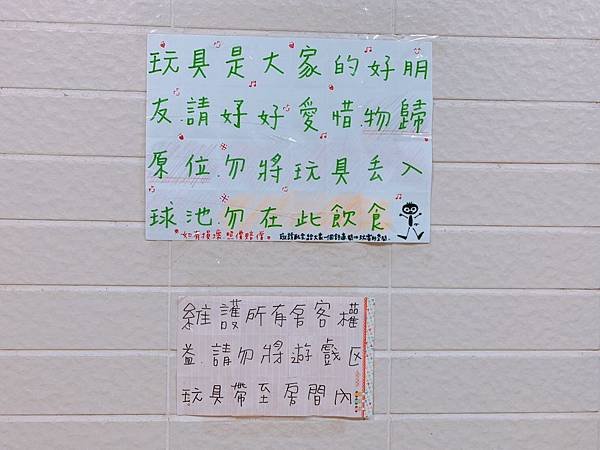 玩具是大家的好朋
友.請好好愛惜.物歸
原位.勿將玩具丟入
球池.勿在此飲食
如有損壞.照價賠償。
維護所有房客權
益.請勿將遊戲区
玩具帶至房間內